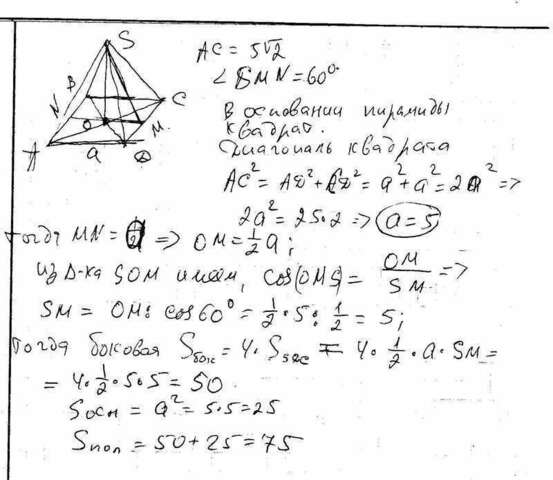 S
B
C
N
O
M.
A
a
D
AC = 5√2
∠SMN = 60°
В основании пирамиды
квадрат.
Диагональ квадрата
AC² = AD² + CD² = a² + a² = 2a² =>
2a² = 25·2 => a = 5
тогда MN = a => OM = ½a;
из Δ-ка SOM имеем, cos(OMS) = OM/SM =>
SM = OM : cos60° = ½·5 : ½ = 5;
тогда боковая Sбок = 4·Ssдс = 4·½·a·SM =
= 4·½·5·5 = 50
Sосн = a² = 5·5 = 25
Sпол = 50 + 25 = 75